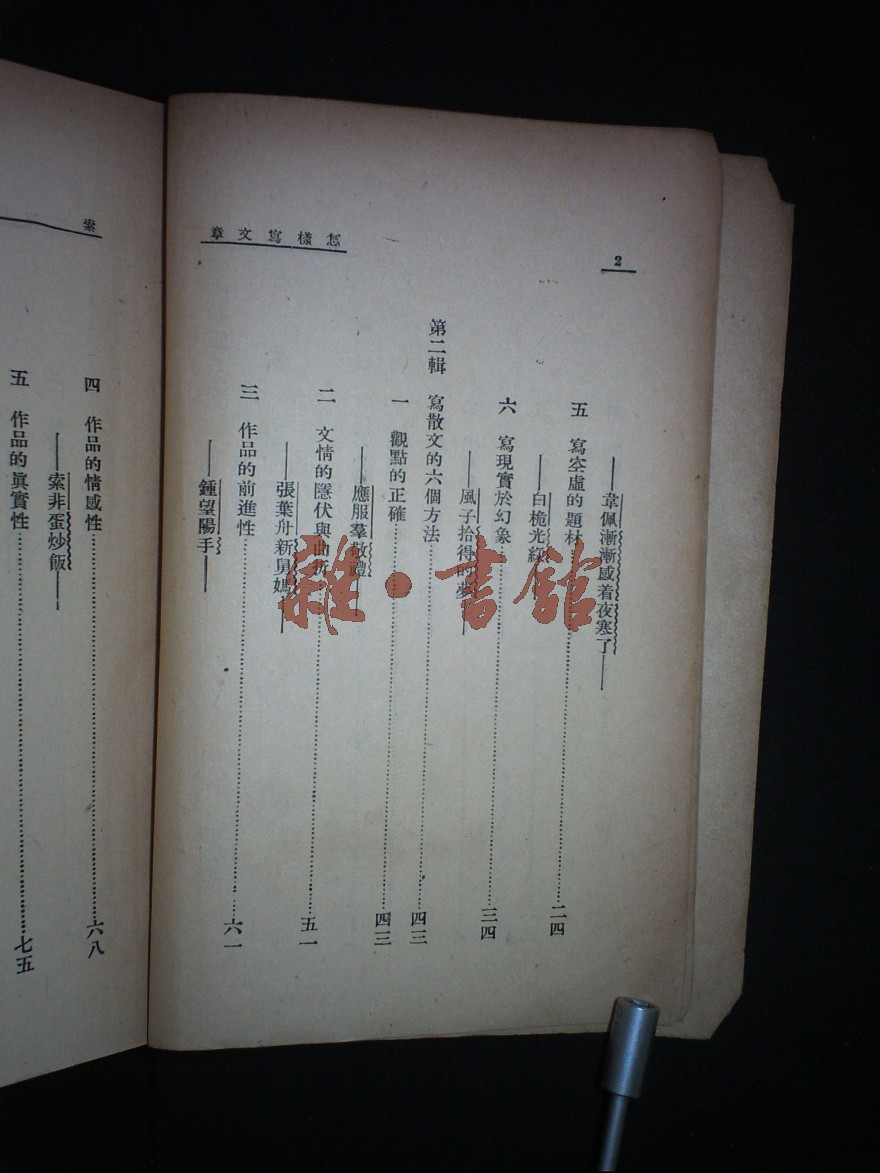 怎樣寫文章
2
——韋佩漸漸感着夜寒了——
五 寫空虛的題材……二四
——白桅光綵——
六 寫現實於幻象……三四
——風子拾得的夢——
第二輯 寫散文的六個方法……四三
一 觀點的正確……四三
——應服羣敬禮——
二 文情的隱伏與曲折……五一
——張葉舟新舅媽——
三 作品的前進性……六一
——鍾望陽手——
索
四 作品的情感性……六八
——索非蛋炒飯——
五 作品的眞實性……七五
雜·書館